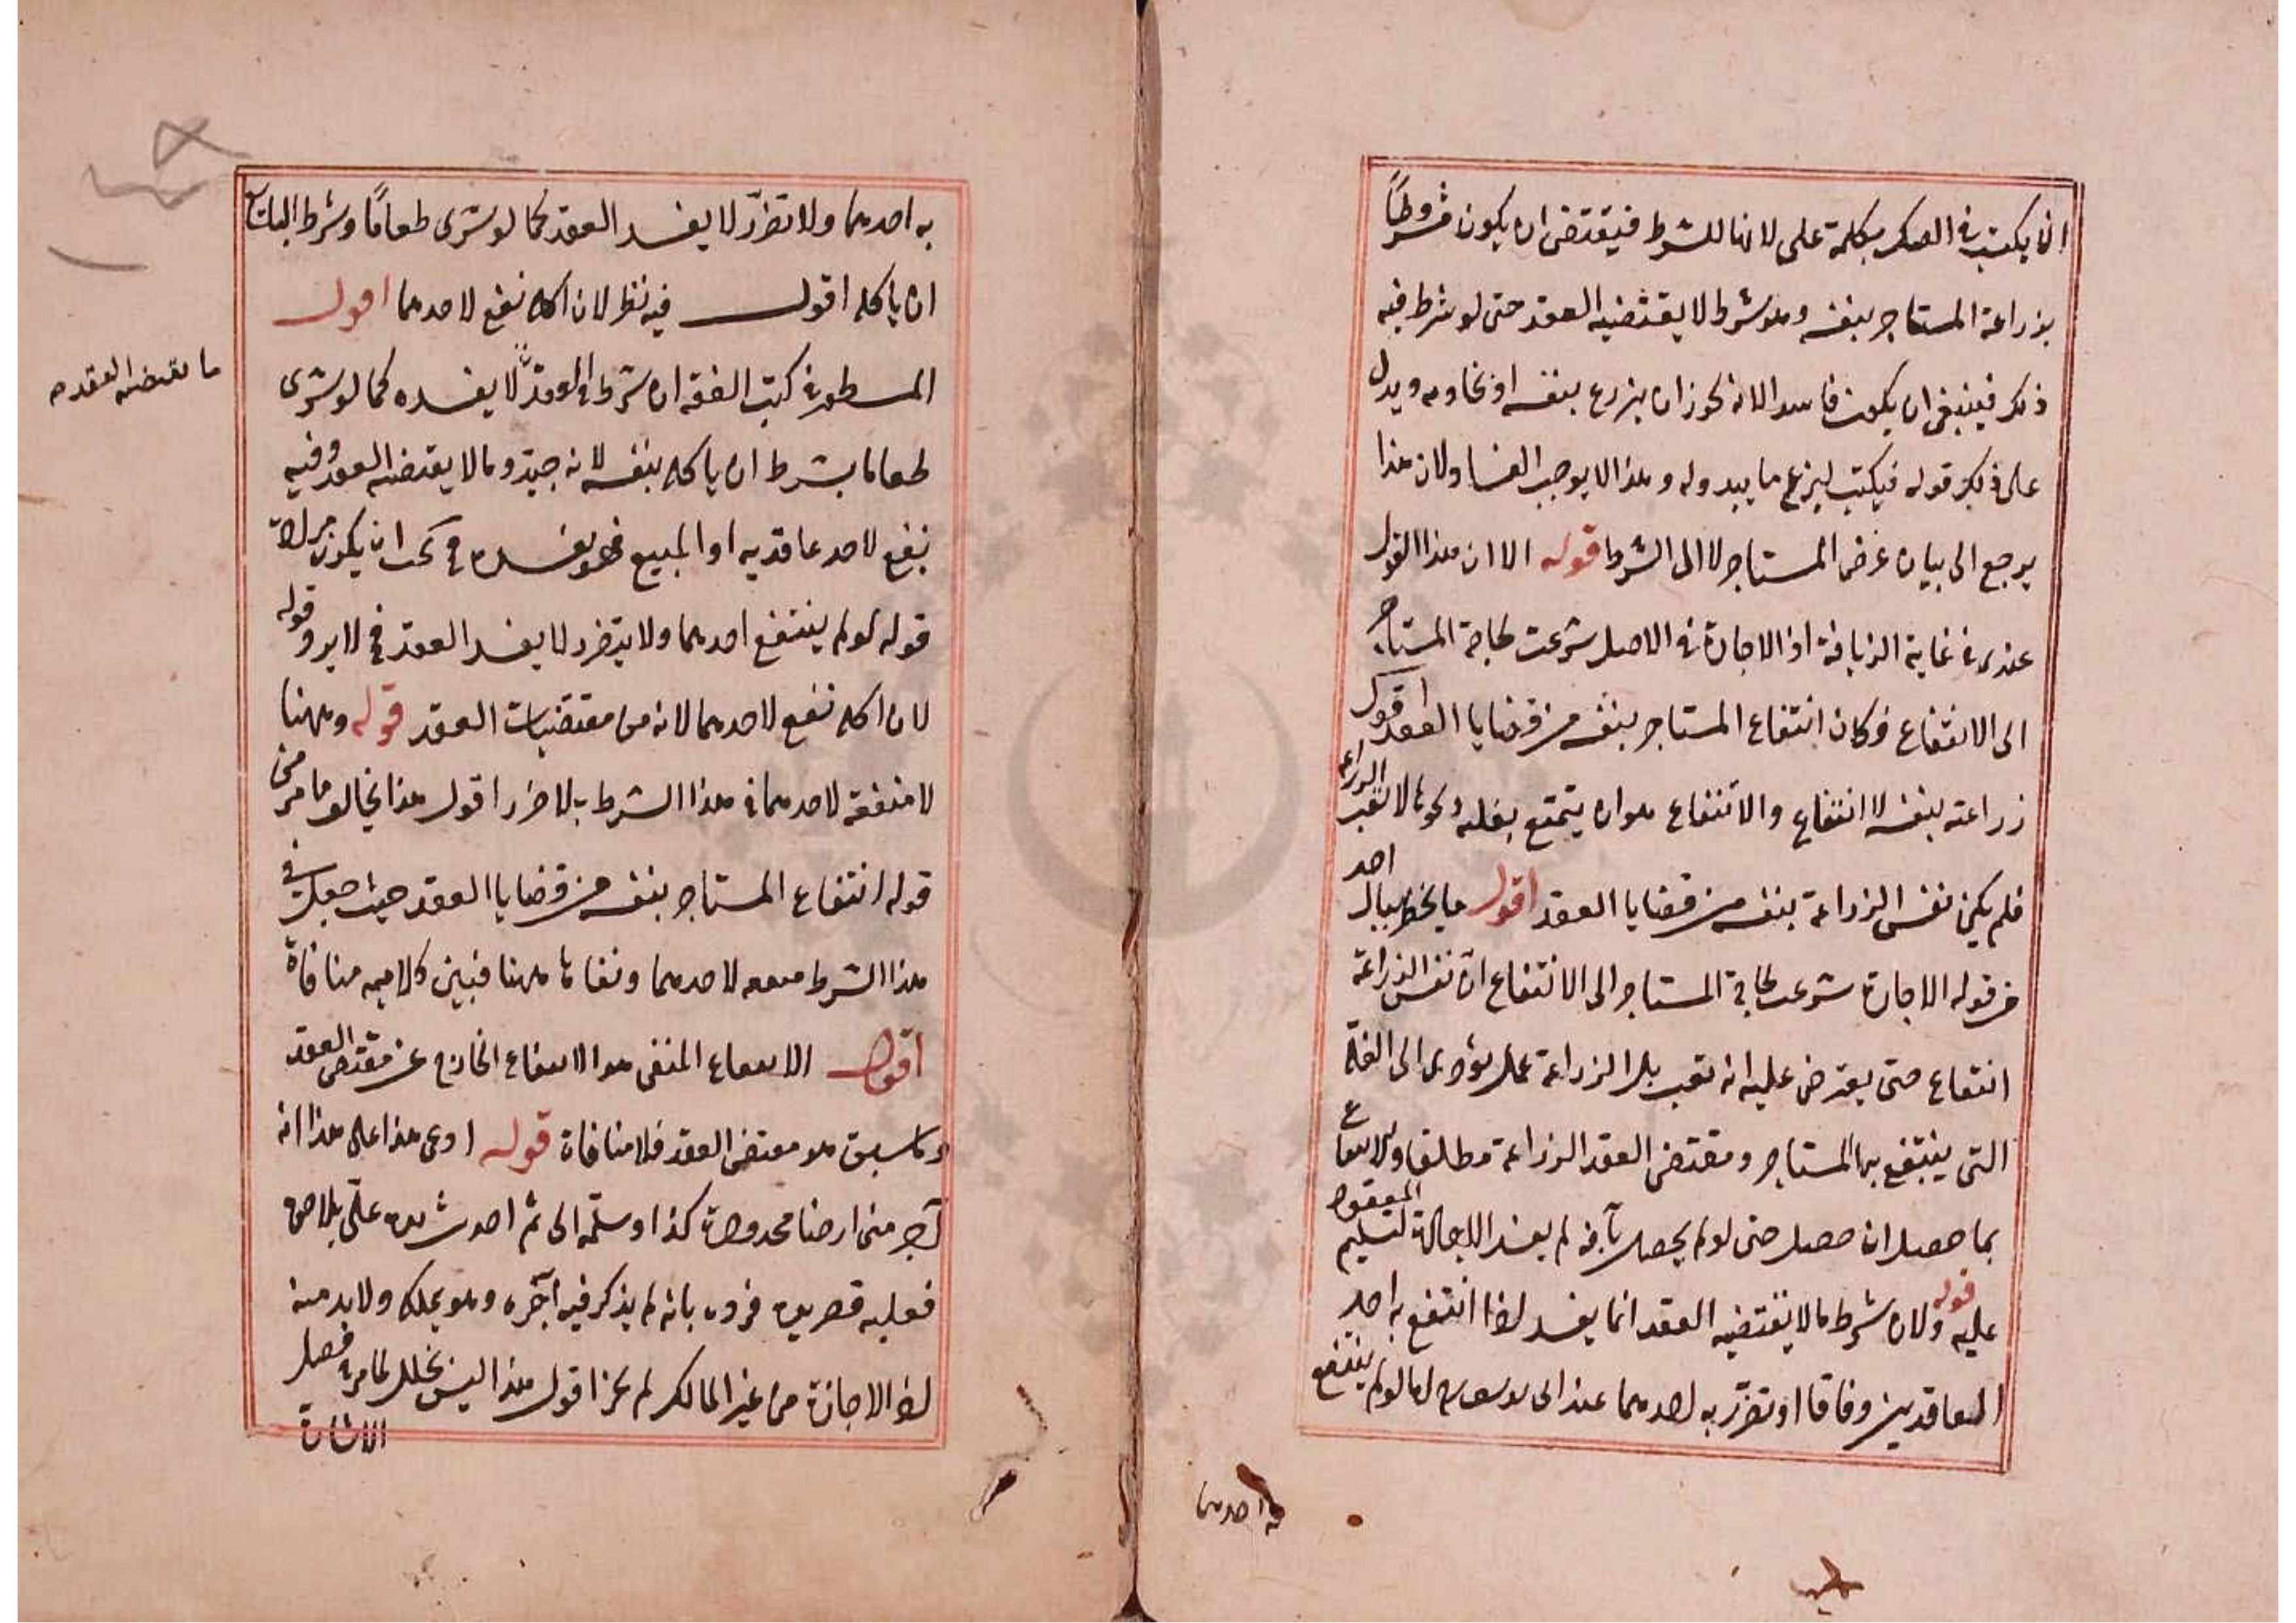 انما يكتب في الصك بكلمة على لانها للشرط فيقتضى ان يكون مشروطاً
بزراعة المستاجر بنفسه وهو شرط لا يقتضيه العقد حتى لو شرط فيه
ذلك فينبغى ان يكون فاسدا الا انه يجوز ان يزرع بنفسه او ويدل
على ذلك قوله فيكتب ليزرع ما يبدو له وهذا لا يوجب الفسا ولان هذا
يرجع الى بيان غرض المستاجر لا الى الشرط قوله الا ان هذا القول
عندى في غاية الزيافة اذ الاجارة في الاصل شرعت لحاجة المستاجر
الى الانتفاع فكان انتفاع المستاجر بنفسه من قضايا العقد اقول
زراعته بنفسه لا انتفاع والانتفاع هو ان يتمتع بغلته ونحوها لا تعب الزراعة
فلم يكن نفس الزراعة بنفسه من قضايا العقد اقول ما يخطر ببال احد
من قوله الاجارة شرعت لحاجة المستاجر الى الانتفاع ان نفس الزراعة
انتفاع حتى يعترض عليه انه تعب بل الزراعة عمل يؤدى الى الغلّة
التى ينتفع بها المستاجر ومقتضى العقد الزراعة مطلقا والانتفاع
بما حصل ان حصل حتى لو لم يحصل بآفة لم يفسد الاجارة لتسليم المعقود
عليه قوله ولان شرط ما لا يقتضيه العقد انما يفسد اذا انتفع به احد
المعاقدين وفاقا او تضرّر به احدهما عند ابى يوسف اما لو لم ينتفع
به احدهما
به احدهما ولا تضرّر لا يفسد العقد كما لو شرى طعامًا وشرط البائع
ان ياكله اقول فيه نظر لان اكله نفع لاحدهما اقول
المسطور في كتب الفقه ان شرط في العقد لا يفسده كما لو شرى
ما يقتضيه العقد صح
طعاما بشرط ان ياكله بنفسه لانه جيد وما لا يقتضيه العقد وفيه
نفع لاحد عاقديه او المبيع فهو يفسده فح يجب ان يكون مراده
قوله لو لم ينتفع احدهما ولا يتضرر لا يفسد العقد فح لا يرد قوله
لان اكله نفع لاحدهما لانه من مقتضيات العقد قوله وههنا
لا منفعة لاحدهما في هذا الشرط بلا ضرر اقول هذا يخالف ما مر من
قوله انتفاع المستاجر بنفسه من قضايا العقد حيث جعل في
هذا الشرط منفعه لاحدهما ونفاها ههنا فبين كلاميه منافاة
اقول الانتفاع المنفى هو الانتفاع الخارج عن مقتضى العقد
وما سبق هو مقتضى العقد فلا منافاة قوله ادعى هذا على هذا انه
آجر منى ارضا محدودة كذا وسلّمه الى ثم احدث يده علىّ بلا حق
فعليه قصر يده فردّ بانه لم يذكر فيه آجره وهو يملكه ولا بد منه
اذ الاجازة من غير المالك لم يجز اقول هذا ليس بخلل لما مر في فصل
الاشارة